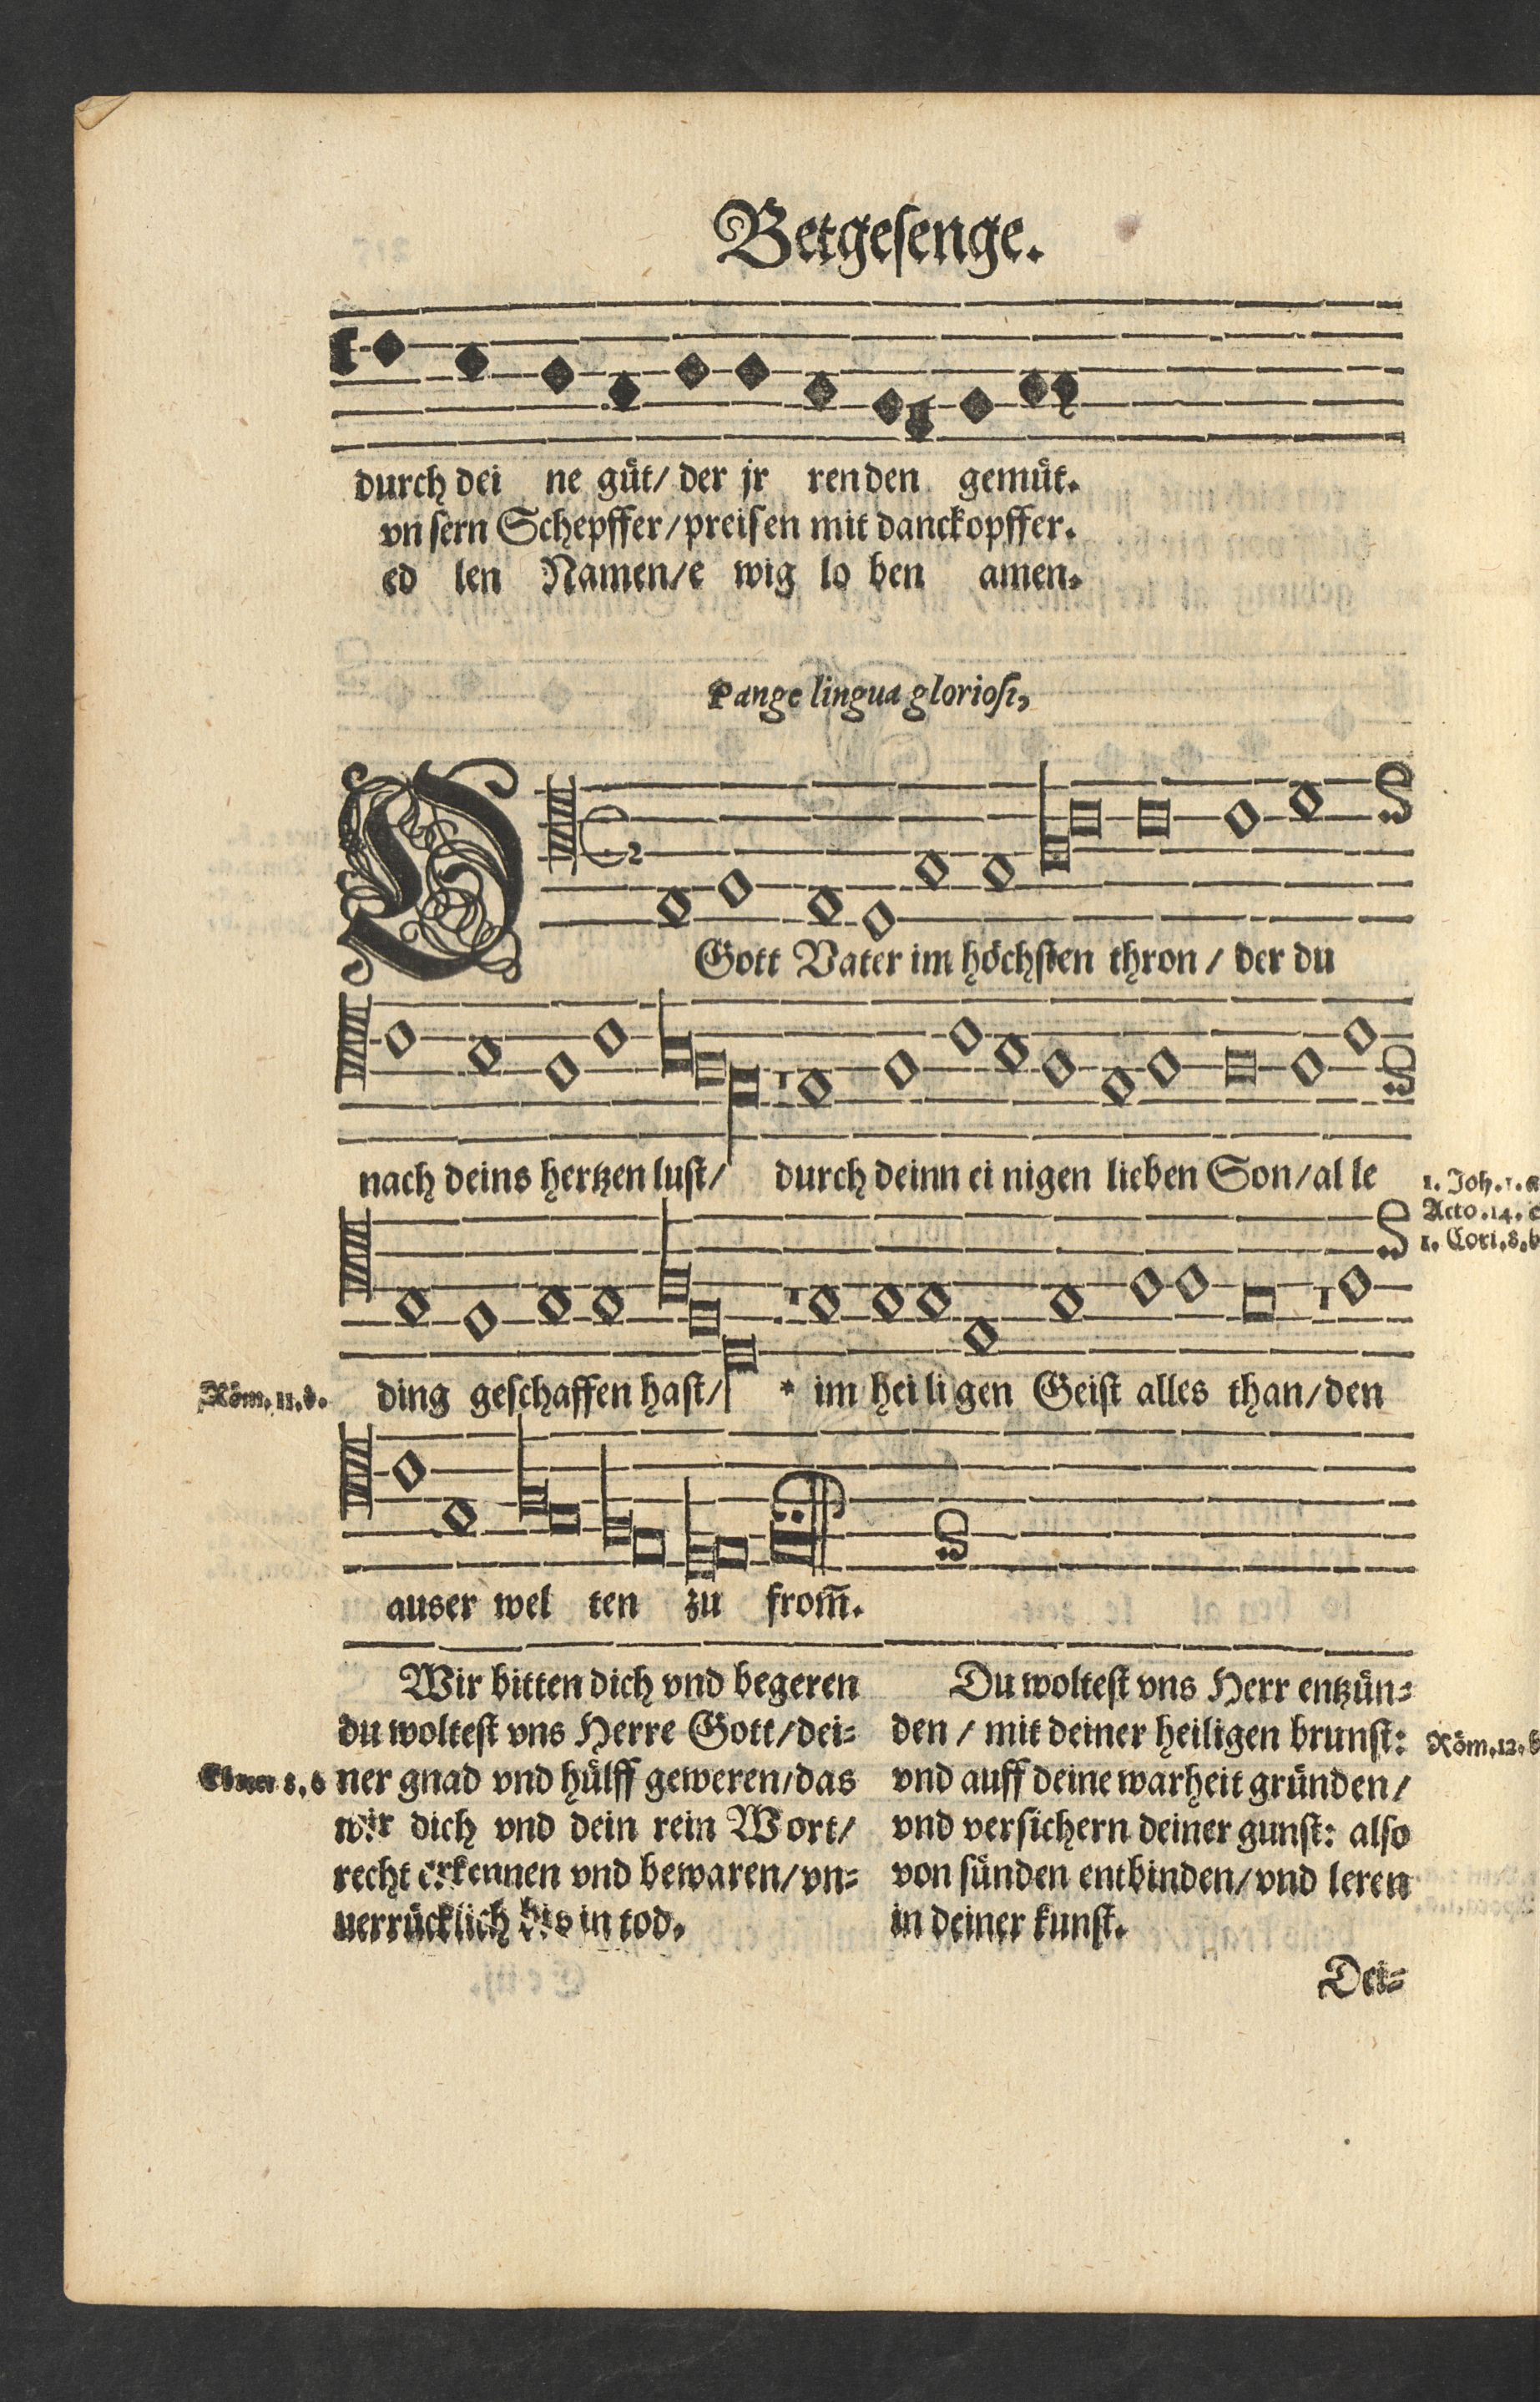 Betgesenge.
durch dei ne güt/ der jr renden gemüt.
vn sern Schepffer/preisen mit danckopffer.
ed len Namen/e wig lo ben amen.
Pange lingua gloriosi,
O
Gott Vater im höchsten thron / der du
nach deins hertzen lust/ durch deinn ei nigen lieben Son/al le
1. Joh. 1. a
Acto. 14. c
1. Cori. 8. b
Röm. 11. d.
ding geschaffen hast/ * im hei li gen Geist alles than/den
auser wel ten zu from̃.
Wir bitten dich vnd begeren
du woltest vns Herre Gott/dei=
ner gnad vnd hülff geweren/das
wir dich vnd dein rein Wort/
recht erkennen vnd bewaren/vn=
uerrücklich bis in tod.
Du woltest vns Herr entzün=
den / mit deiner heiligen brunst:
Röm. 12. b
vnd auff deine warheit gründen/
vnd versichern deiner gunst: also
von sünden entbinden/vnd leren
in deiner kunst.
Dei=